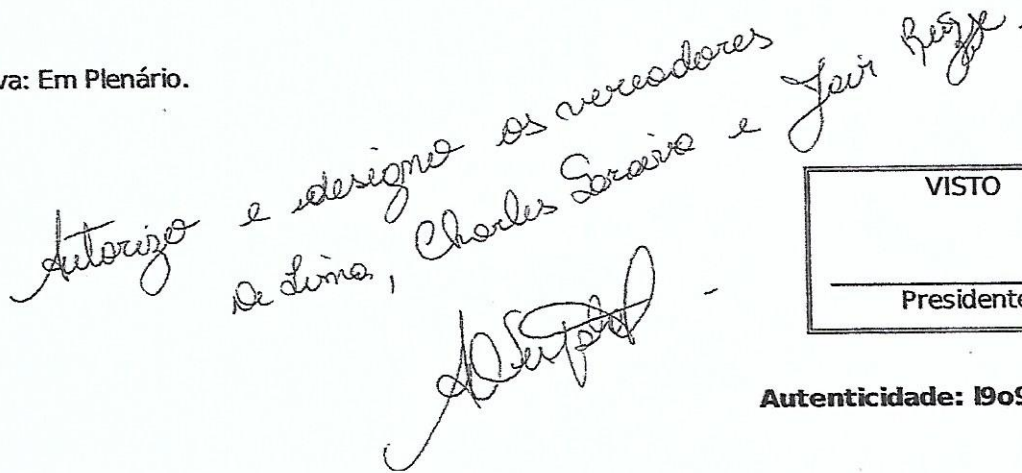 va: Em Plenário.
Autorizo e designo os vereadores
De Lima, Charles Saraiva e Jair Rizzo.
VISTO
Presidente
Autenticidade: I9o9